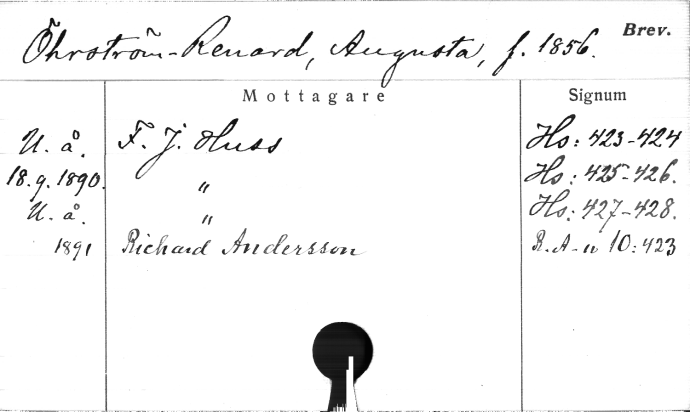 Öhrström-Renard, Augusta, f. 1856. Brev.
Mottagare Signum
U. å. F. J. Huss Hs: 423-424
18.9.1890. " Hs: 425-426.
U. å. " Hs: 427-428.
1891 Richard Andersson R.A-n 10:423